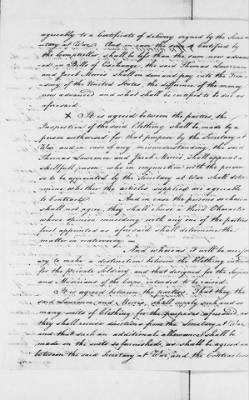 agreeably to a Certificate of delivery signed by the Secre-
tary at War. And in case the sum so Certified by
the Comptroller shall be less than the sum now advan-
ced in Bills of Exchange, the said Thomas Lawrence
and Jacob Morris shall on demand pay into the Trea-
sury of the United States, the difference of the money
now advanced and what shall be certified to be due as
aforesaid.
X It is agreed between the parties, the
Inspection of the said Clothing shall be made by a
person authorised for the purpose by the Secretary at
War, and in case of any misunderstanding, the said
Thomas Lawrence and Jacob Morris Shall appoint a
skilful person who in conjunction with the person
so to be appointed by the Secretary at War shall deter-
mine whether the articles supplied are agreeable
to Contract. And in case the persons so chosen
shall not agree, they shall chose a third Character
whose opinion coinciding with any one of the parties
first appointed as aforesaid shall determine the
matter in controversy.
And whereas it will be necess-
ary to make a distinction between the Clothing intended
for the private Soldiers, and that designed for the Serjeants
and Musicians of the Corps, intended to be raised.
It is agreed between the parties, That they the
said Lawrence and Morris, shall supply such and so
many suits of Clothing, for the purposes aforesaid, as
they shall receive directions from the Secretary at War,
and that such an additional allowance shall be
made on the suits so furnished, as shall be agreed on
between the said Secretary at War, and the Contractors